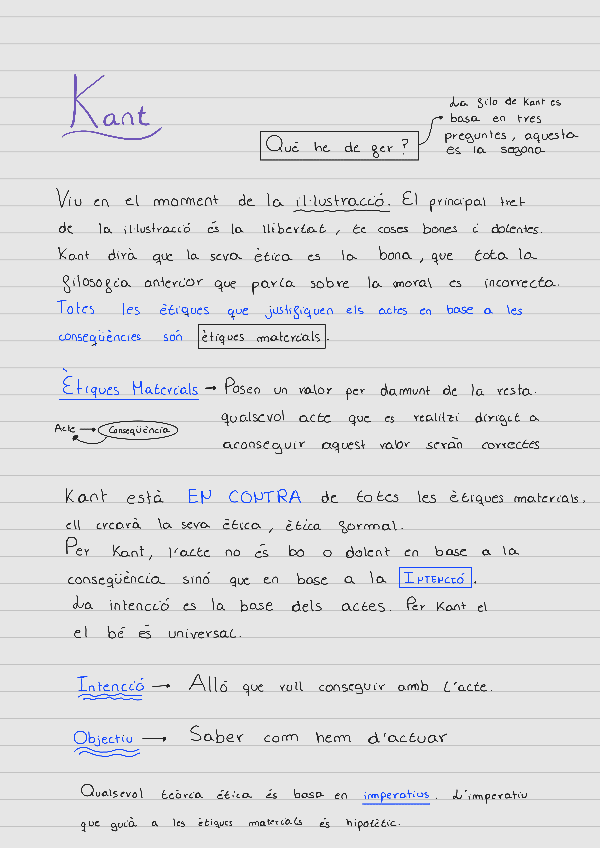 Kant
Què he de fer?
La filo de Kant es
basa en tres
preguntes, aquesta
és la segona
Viu en el moment de la il·lustració. El principal tret
de la il·lustració és la llibertat, te coses bones i dolentes.
Kant dirà que la seva ètica es la bona, que tota la
filosofia anterior que parla sobre la moral es incorrecta.
Totes les ètiques que justifiquen els actes en base a les
conseqüències són ètiques materials.
Ètiques Materials → Posen un valor per damunt de la resta.
qualsevol acte que es realitzi dirigit a
aconseguir aquest valor seràn correctes
Acte → Conseqüència
Kant està EN CONTRA de totes les ètiques materials,
ell crearà la seva ètica, ètica formal.
Per Kant, l'acte no és bo o dolent en base a la
conseqüència sinó que en base a la INTENCIÓ.
La intenció es la base dels actes. Per Kant el
el bé és universal.
Intenció → Alló que vull conseguir amb l'acte.
Objectiu → Saber com hem d'actuar
Qualsevol teòria ètica és basa en imperatius. L'imperatiu
que guià a les ètiques materials és hipotètic.